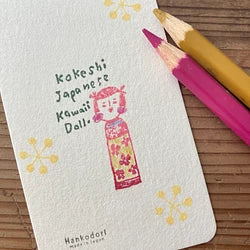 Kokeshi
Japanese
Kawaii
Doll.
Hankodori
made in Japan